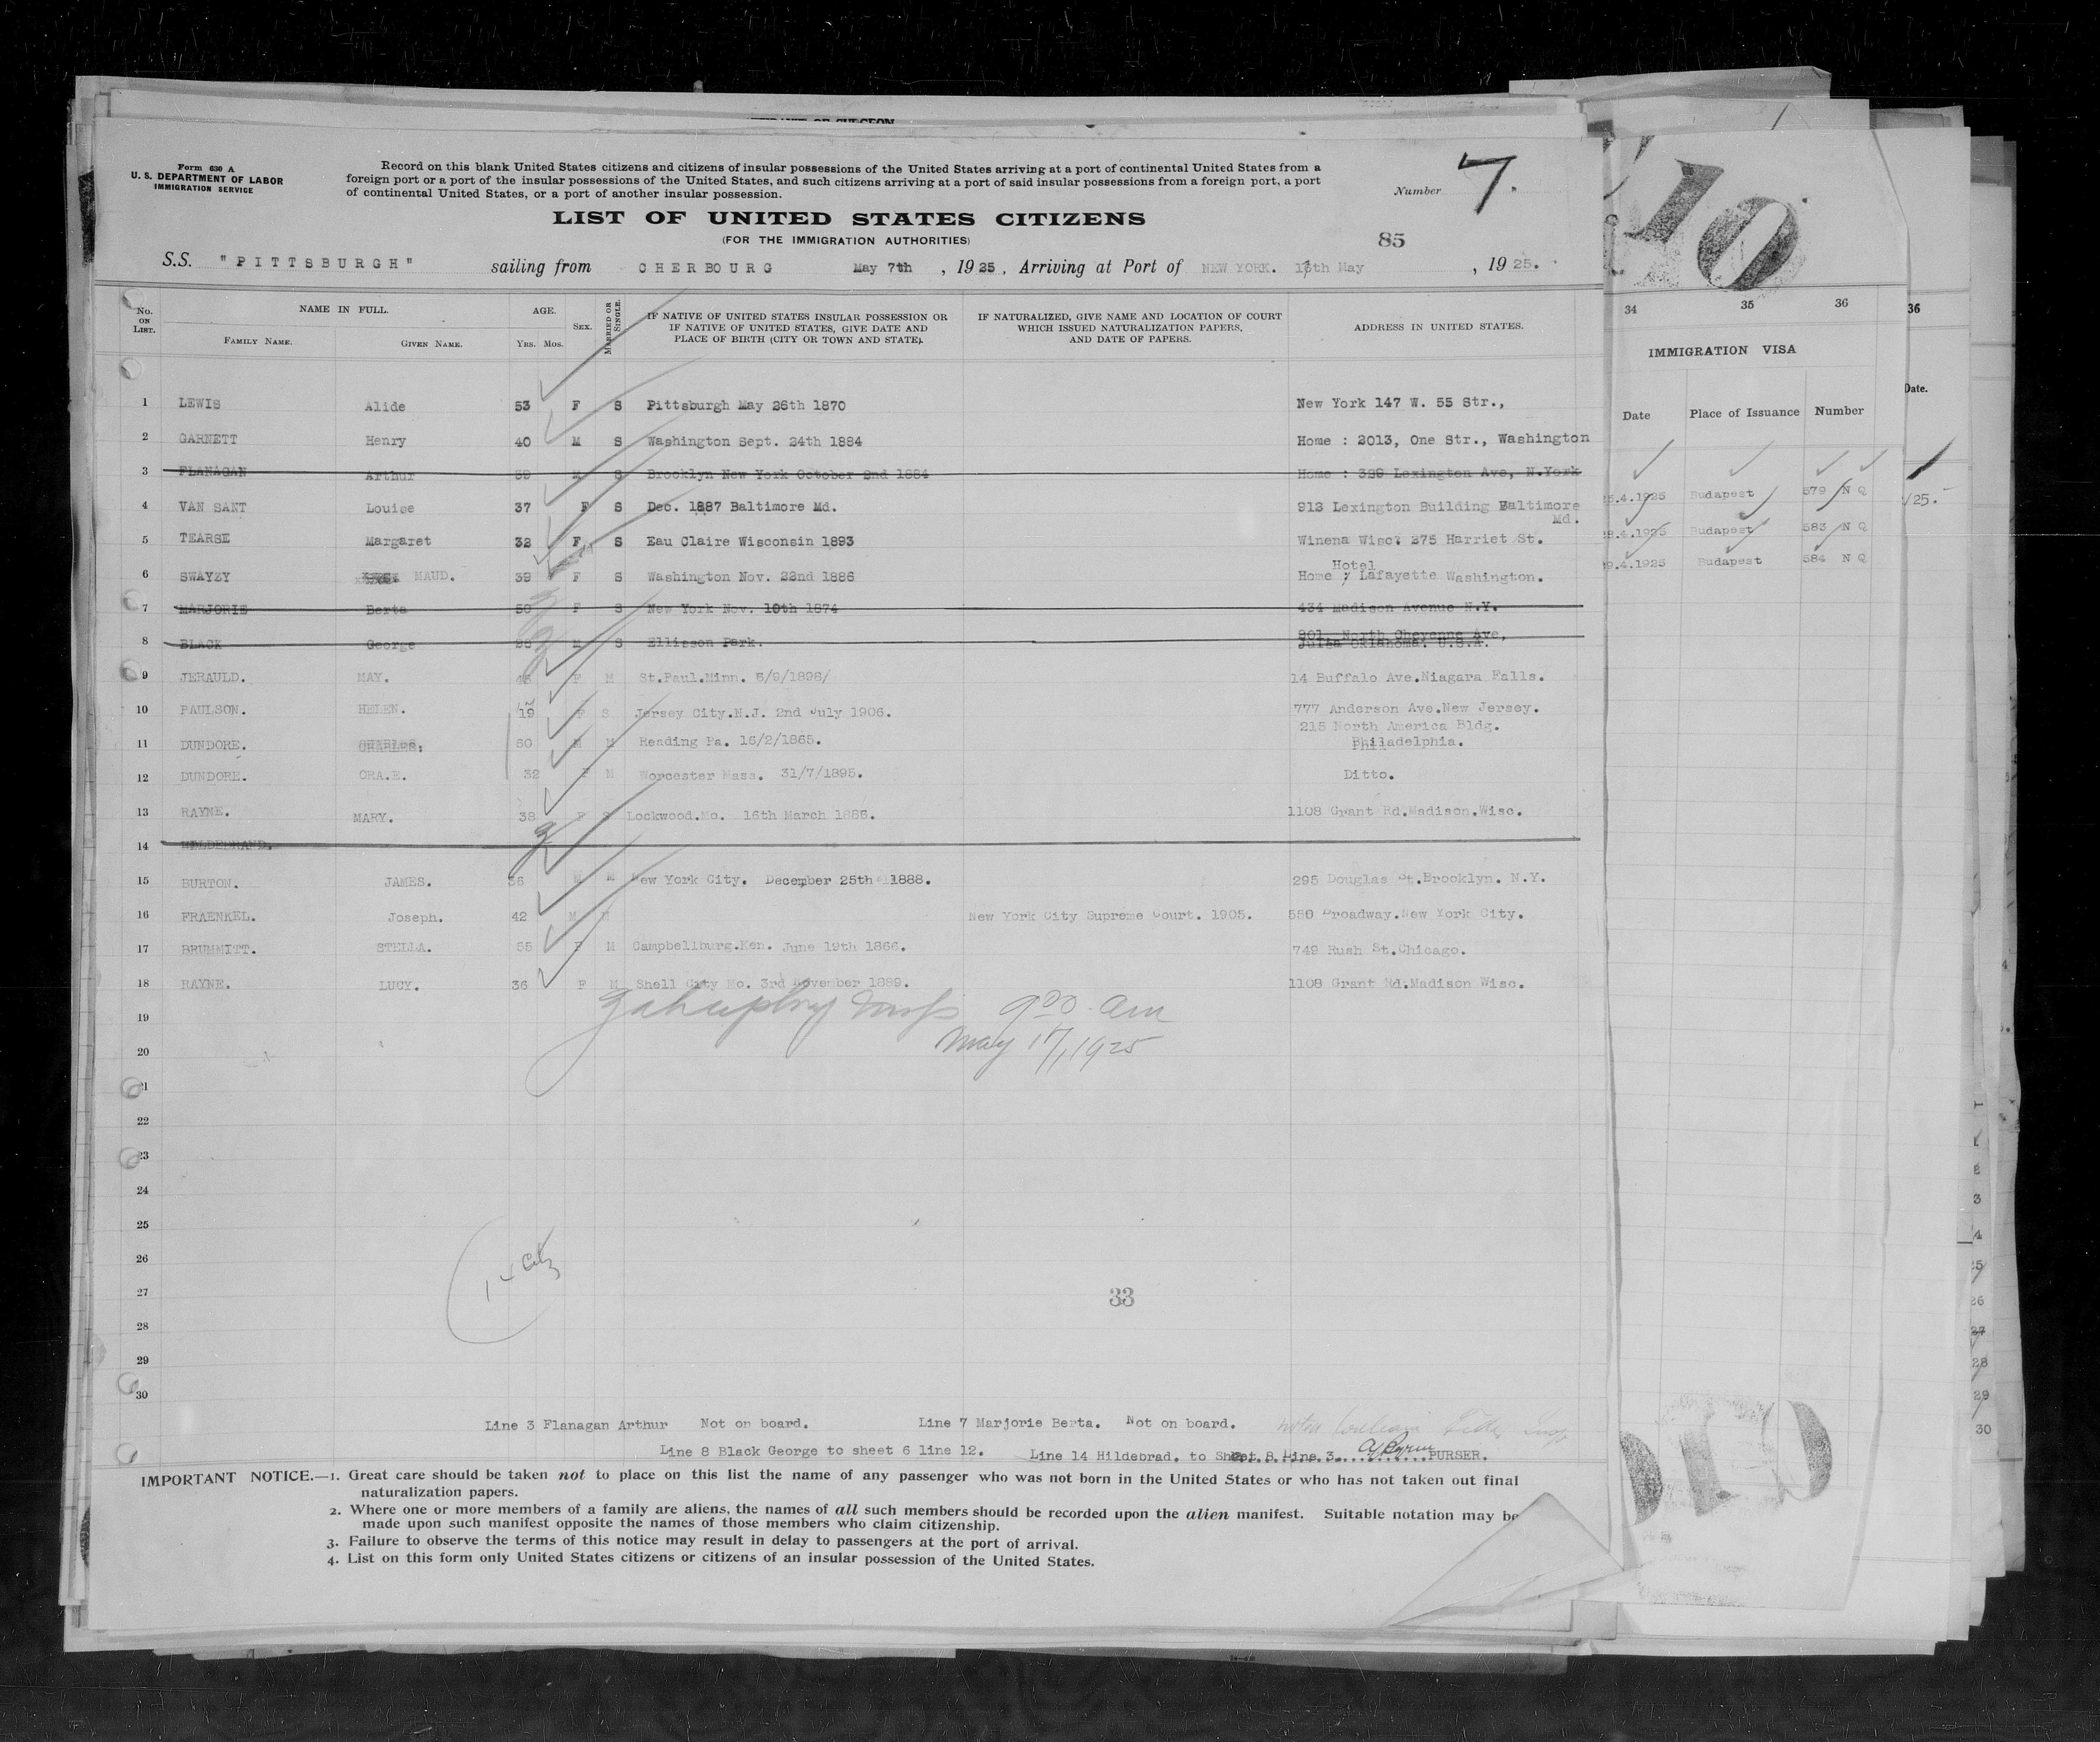 Form 630 A
U. S. DEPARTMENT OF LABOR
IMMIGRATION SERVICE
Record on this blank United States citizens and citizens of insular possessions of the United States arriving at a port of continental United States from a
foreign port or a port of the insular possessions of the United States, and such citizens arriving at a port of said insular possessions from a foreign port, a port
of continental United States, or a port of another insular possession.
Number 7.
LIST OF UNITED STATES CITIZENS
(FOR THE IMMIGRATION AUTHORITIES)
85
S.S. "PITTSBURGH" sailing from CHERBOURG May 7th, 1925, Arriving at Port of NEW YORK. 17th May, 1925.
No. ON LIST. NAME IN FULL. FAMILY NAME. GIVEN NAME. AGE. YRS. MOS. SEX. MARRIED OR SINGLE. IF NATIVE OF UNITED STATES INSULAR POSSESSION OR IF NATIVE OF UNITED STATES, GIVE DATE AND PLACE OF BIRTH (CITY OR TOWN AND STATE). IF NATURALIZED, GIVE NAME AND LOCATION OF COURT WHICH ISSUED NATURALIZATION PAPERS, AND DATE OF PAPERS. ADDRESS IN UNITED STATES.
1 LEWIS Alide 53 F S Pittsburgh May 26th 1870 New York 147 W. 55 Str.,
2 GARNETT Henry 40 M S Washington Sept. 24th 1884 Home : 2013, One Str., Washington
3 FLANAGAN Arthur M S Brooklyn New York October 2nd 1884 Home : 329 Lexington Ave, N.York
4 VAN SANT Louise 37 F S Dec. 1887 Baltimore Md. 913 Lexington Building Baltimore Md.
5 TEARSE Margaret 32 F S Eau Claire Wisconsin 1893 Winena Wisc. 275 Harriet St.
6 SWAYZY MAUD. 39 F S Washington Nov. 22nd 1886 Home : Hotel Lafayette Washington.
7 MARJORIE Berta 50 F S New York Nov. 10th 1874 434 Madison Avenue N.Y.
8 BLACK George M S Ellisson Park. 901 North Cheyenne Ave, Julsa Oklahoma. U.S.A.
9 JERAULD. MAY. F M St.Paul.Minn. 5/9/1898/ 14 Buffalo Ave.Niagara Falls.
10 PAULSON. HELEN. 19 F S Jersey City.N.J. 2nd July 1906. 777 Anderson Ave.New Jersey.
11 DUNDORE. CHARLES. 60 M M Reading Pa. 16/2/1865. 215 North America Bldg. Philadelphia.
12 DUNDORE. ORA.E. 32 F M Worcester Mass. 31/7/1895. Ditto.
13 RAYNE. MARY. 38 F S Lockwood.Mo. 16th March 1886. 1108 Grant Rd.Madison.Wisc.
14 HILDEBRAND.
15 BURTON. JAMES. 36 M M New York City. December 25th 1888. 295 Douglas St.Brooklyn. N.Y.
16 FRAENKEL. Joseph. 42 M M New York City Supreme Court. 1905. 550 Broadway.New York City.
17 BRUMMITT. STELLA. 55 F M Campbellburg.Ken. June 19th 1866. 749 Rush St.Chicago.
18 RAYNE. LUCY. 36 F M Shell City Mo. 3rd November 1889. 1108 Grant Rd.Madison Wisc.
19 9 00 am
20 May 17, 1925
21
22
23
24
25
26
27
28
29
30
33
Line 3 Flanagan Arthur Not on board. Line 7 Marjorie Berta. Not on board.
Line 8 Black George to sheet 6 line 12. Line 14 Hildebrad. to Sheet 8 Line 3. PURSER.
IMPORTANT NOTICE.—1. Great care should be taken not to place on this list the name of any passenger who was not born in the United States or who has not taken out final
naturalization papers.
2. Where one or more members of a family are aliens, the names of all such members should be recorded upon the alien manifest. Suitable notation may be
made upon such manifest opposite the names of those members who claim citizenship.
3. Failure to observe the terms of this notice may result in delay to passengers at the port of arrival.
4. List on this form only United States citizens or citizens of an insular possession of the United States.
10
34 35 36
IMMIGRATION VISA
Date Place of Issuance Number
5.4.1925 Budapest 579 NQ
8.4.1925 Budapest 583 NQ
9.4.1925 Budapest 584 NQ
36
Date.
/25.
26
27
28
29
30